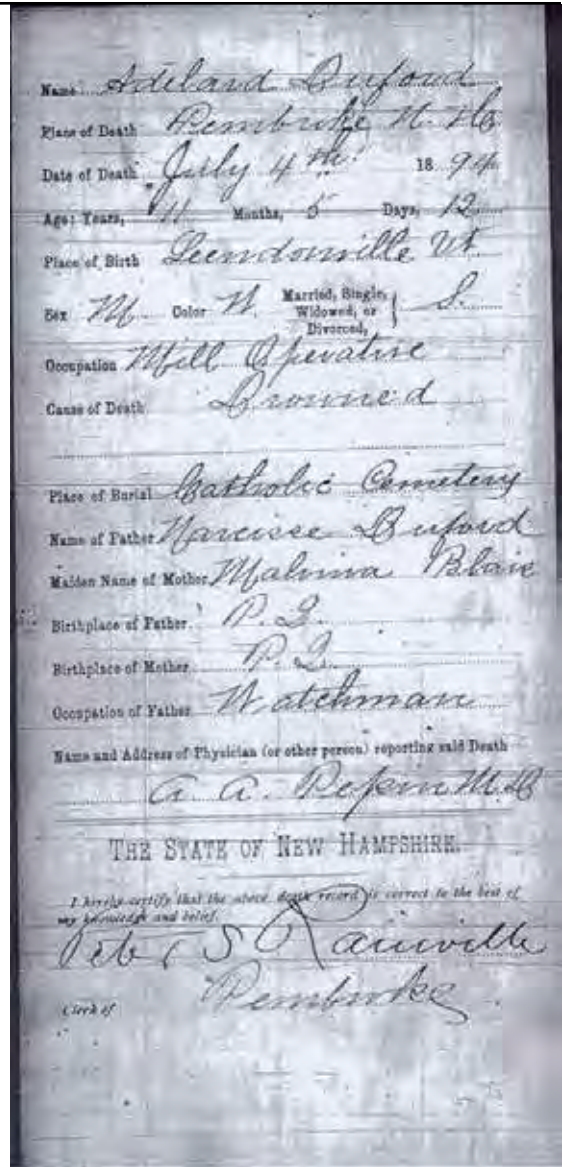 Name Adelard Duford
Place of Death Pembroke N. H.
Date of Death July 4th 1894
Age: Years, 11 Months, 5 Days, 12
Place of Birth Leendonville Vt.
Sex M. Color W. Married, Single, Widowed, or Divorced, } S.
Occupation Mill Operative
Cause of Death Drowned
Place of Burial Catholic Cemetery
Name of Father Narcisse Duford
Maiden Name of Mother Malvina Blais
Birthplace of Father P. Q.
Birthplace of Mother P. Q.
Occupation of Father Watchman
Name and Address of Physician (or other person) reporting said Death
A. A. Pepin M D
THE STATE OF NEW HAMPSHIRE.
I hereby certify that the above death record is correct to the best of
my knowledge and belief.
Peter S Rainville
Clerk of Pembroke